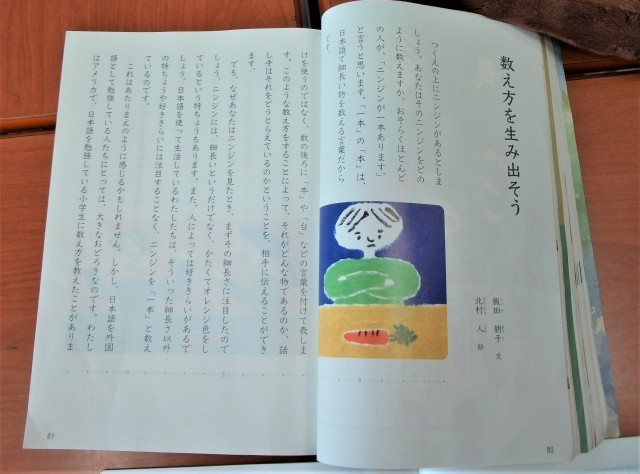 数え方を生み出そう
飯田 朝子 文
北村 人 絵
つくえの上にニンジンがあるとしま
しょう。あなたはそのニンジンをどの
ように数えますか。おそらくほとんど
の人が、「ニンジンが一本あります。」
と言うと思います。「一本」の「本」は、
日本語で細長い物を数える言葉だから
です。
80
けを使うのではなく、数の後ろに「本」や「台」などの言葉を付けて表しま
す。このような数え方をすることによって、それがどんな物であるのか、話
し手はそれをどうとらえているのかということを、相手に伝えることができ
ます。
でも、なぜあなたはニンジンを見たとき、まずその細長さに注目したので
しょう。ニンジンには、細長いというだけでなく、かたくてオレンジ色をし
ているという特ちょうもあります。また、人によっては好ききらいがあるで
しょう。日本語を使って生活しているわたしたちは、そういった細長さ以外
の特ちょうや好ききらいには注目することなく、ニンジンを「一本」と数え
ているのです。
これはあたりまえのように感じるかもしれません。しかし、日本語を外国
語として勉強している人たちにとっては、大きなおどろきなのです。わたし
はアメリカで、日本語を勉強している小学生に数え方を教えたことがありま
81